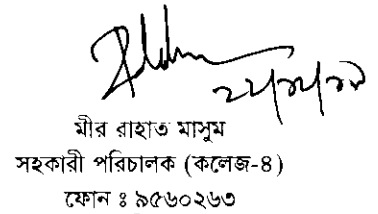 মীর রাহাত মাসুম
সহকারী পরিচালক (কলেজ-৪)
ফোন ঃ ৯৫৬০২৬৩